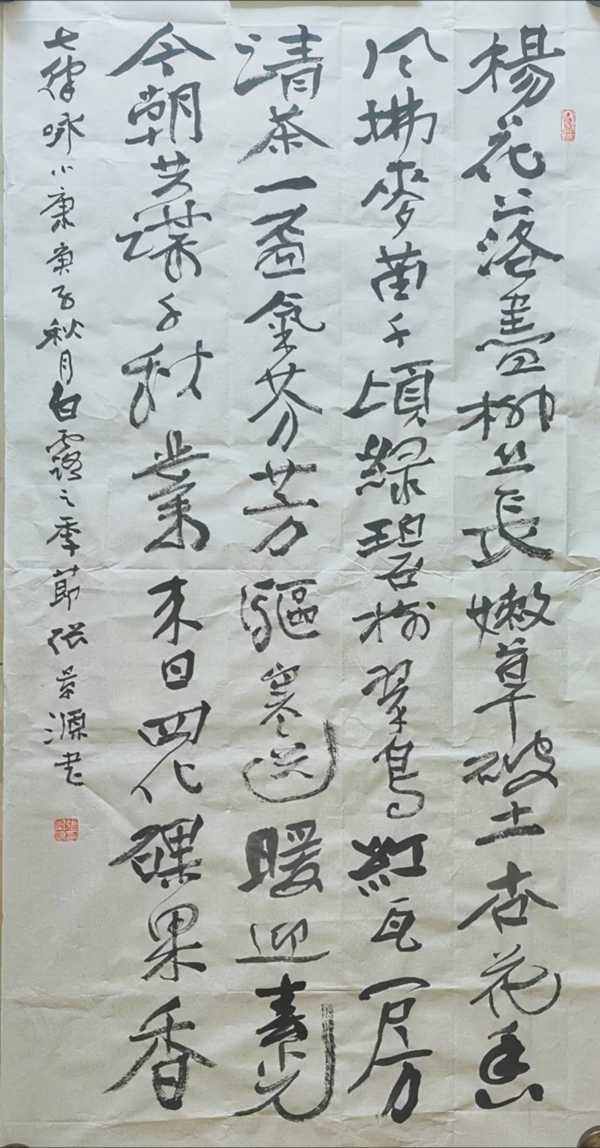 楊花落盡柳丝長嫩草破土杏花香
风拂麥苗千頃緑碧翠鸟紅瓦房
清茶一盃氣芬芳驅寒送暖迎春光
今朝共谋千秋業来日四化碩果香
七律咏小康庚子秋月白露之季節张景源书